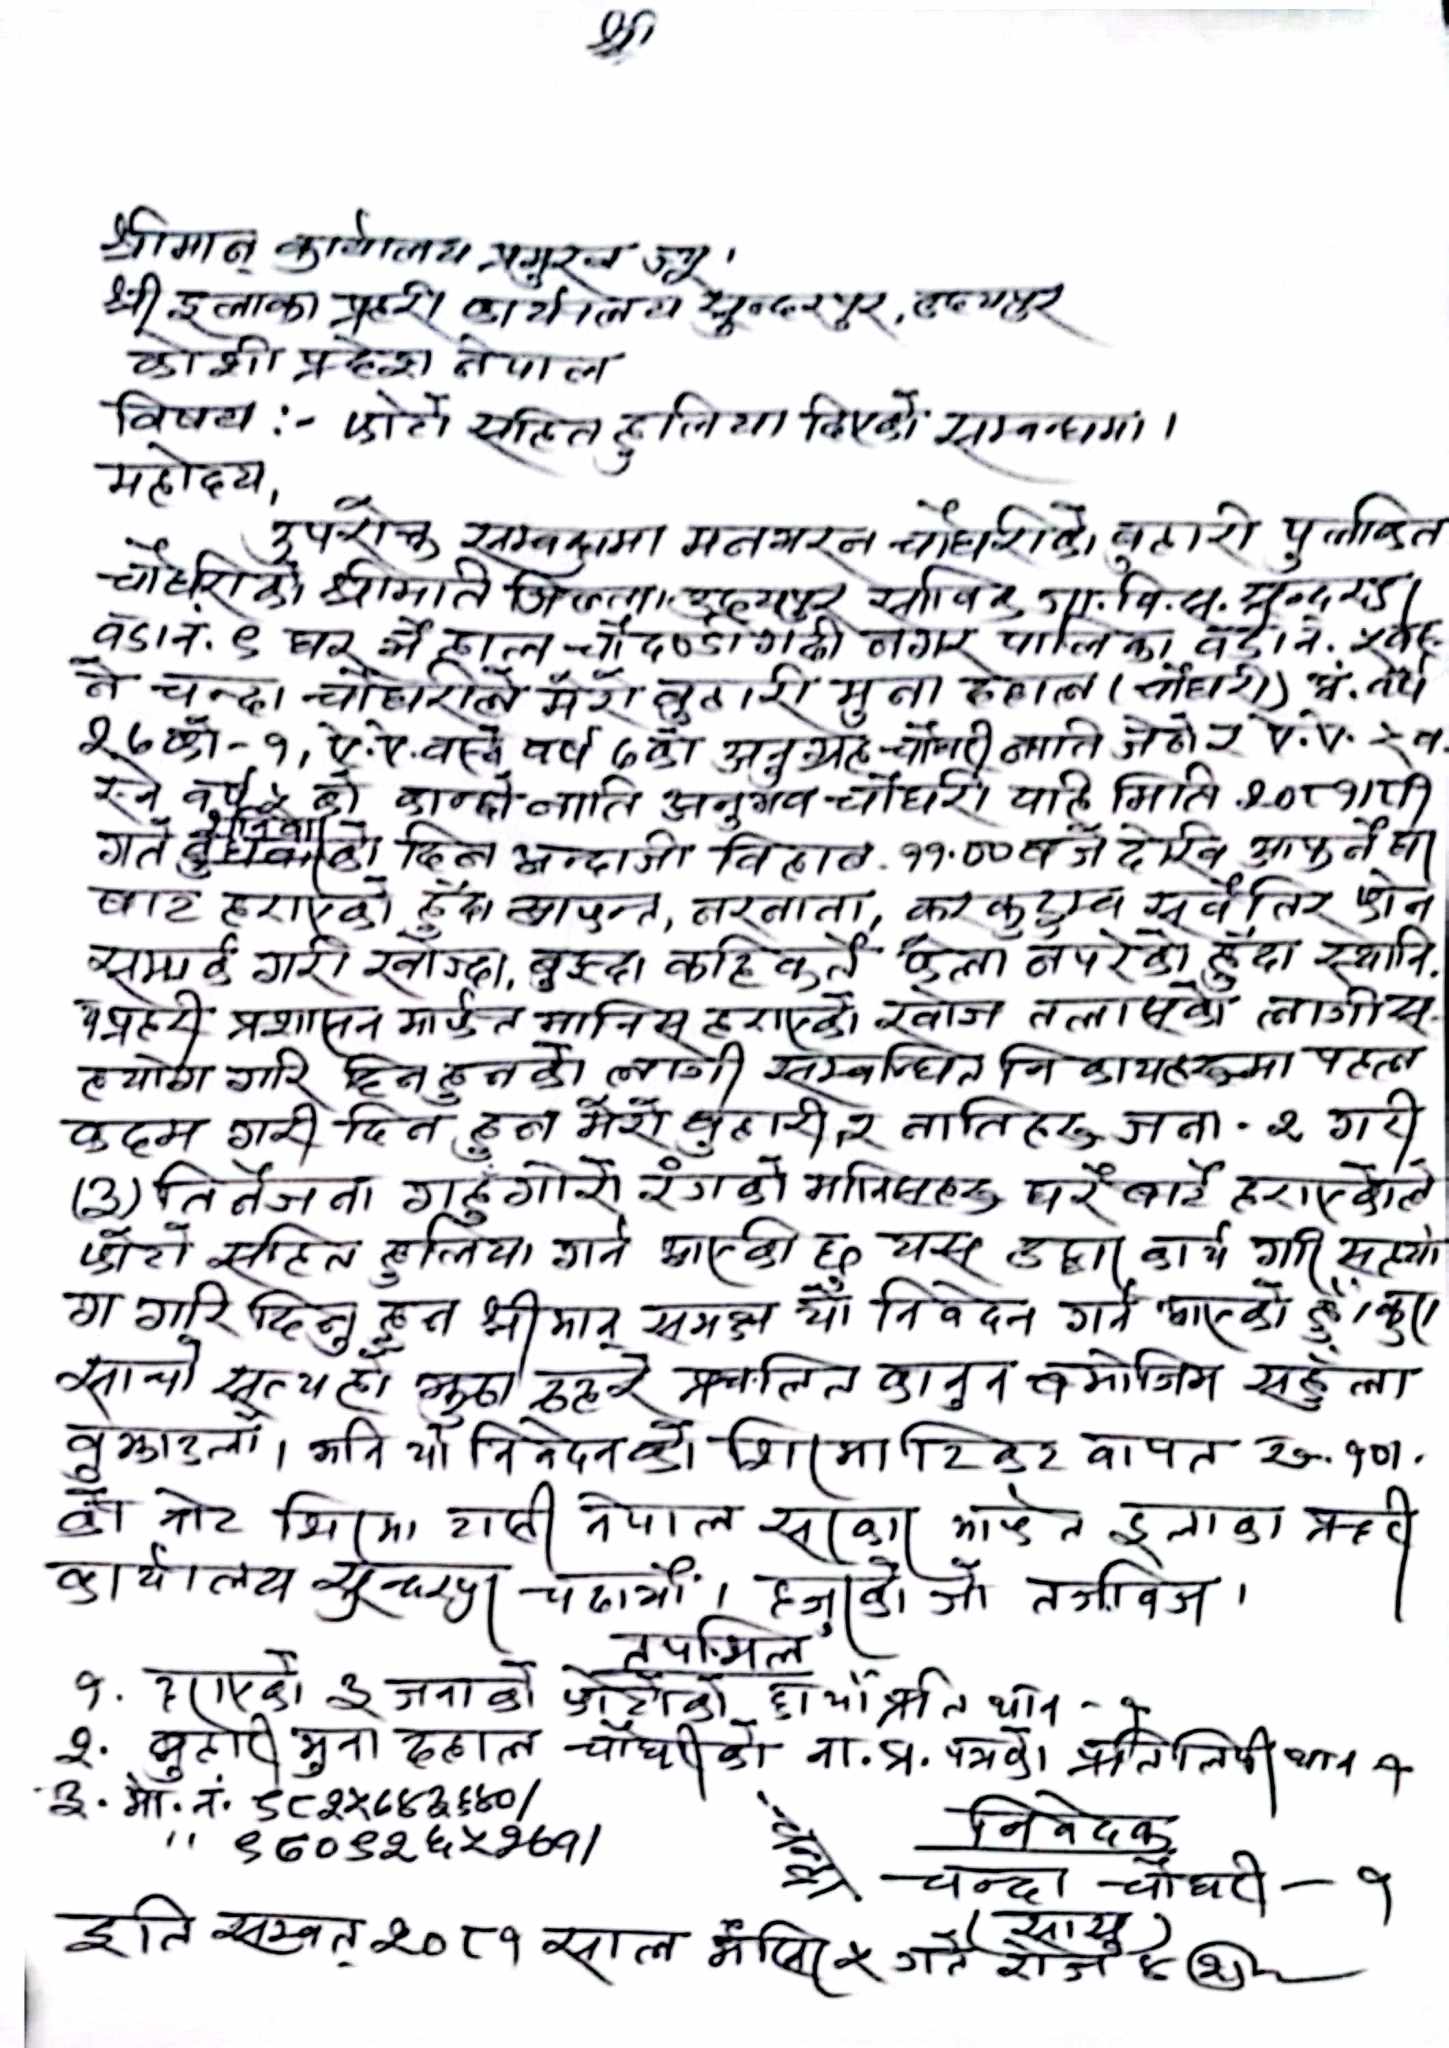 श्री
श्रीमान् कार्यालय प्रमुख ज्यू,
श्री इलाका प्रहरी कार्यालय सुन्दरपुर, उदयपुर
कोशी प्रदेश नेपाल
विषय :- फोटो सहित हुलिया दिएको सम्बन्धमा।
महोदय,
उपरोक्त सम्बन्धमा मनभरन चौधरीको बुहारी पुलकित
चौधरीको श्रीमति जिल्ला उदयपुर साविक गा.वि.स. सुन्दर
वडा नं. ९ घर भै हाल चौदण्डीगढी नगर पालिका वडा नं. ५ बस्
ने चन्दा चौधरीले मेरो बुहारी मुना दहाल (चौधरी) अं. वर्ष
२७ को - १, ऐ.ऐ. बस्ने वर्ष ७ का अनुग्रह चौधरी नाति जेठो र ऐ.ऐ. ब.
स्ने वर्ष ५ को कान्छो नाति अनुभव चौधरी यहि मिति २०८१।८।
गते को दिन अन्दाजी विहान ११.०० बजे देखि आफ्नै घर
बाट हराएको हुँदा आफन्त, नरनाता, करकुटुम्ब सवैतिर फोन
सम्पर्क गरी खोज्दा, बुझ्दा कहिकतै फेला नपरेको हुँदा स्थानि.
य प्रहरी प्रशासन मार्फत मानिस हराएको खोज तलासको लागी स-
हयोग गरि दिनुहुनको लागी सम्बन्धित निकायहरुमा पहल
कदम गरी दिनु हुन मेरो बुहारी र नातिहरु जना - २ गरी
(३) तिनैजना गहुँगोरो रंगको मानिसहरु घरै बाट हराएकोले
फोटो सहित हुलिया गर्न आएकी छु यस उद्धार कार्य गरि सहयो
ग गरि दिनु हुन श्रीमान् समक्ष यो निवेदन गर्न आएको छुँ। कुरा
साचो सत्य हो झुठा ठहरे प्रचलित कानुन बमोजिम सहुँला
बुझाउला। भनि यो निवेदनको शिरमा टिकट वापत रु. १०।
को नोट शिरमा राखी नेपाल सरकार मार्फत इलाका प्रहरी
कार्यालय सुन्दरपुर चढायौं। हजुरको जो तजविज।
तपसिल
१. हराएको ३ जनाको फोटोको छायाँ प्रति थान - १
२. बुहारी मुना दहाल चौधरीको ना.प्र. पत्रको प्रतिलिपी थान १
३. मो. नं.
निवेदक
चन्दा चौधरी - १
(सासु)
इति सम्वत् २०८१ साल मंसिर ५ गते रोज ४ शुभम्